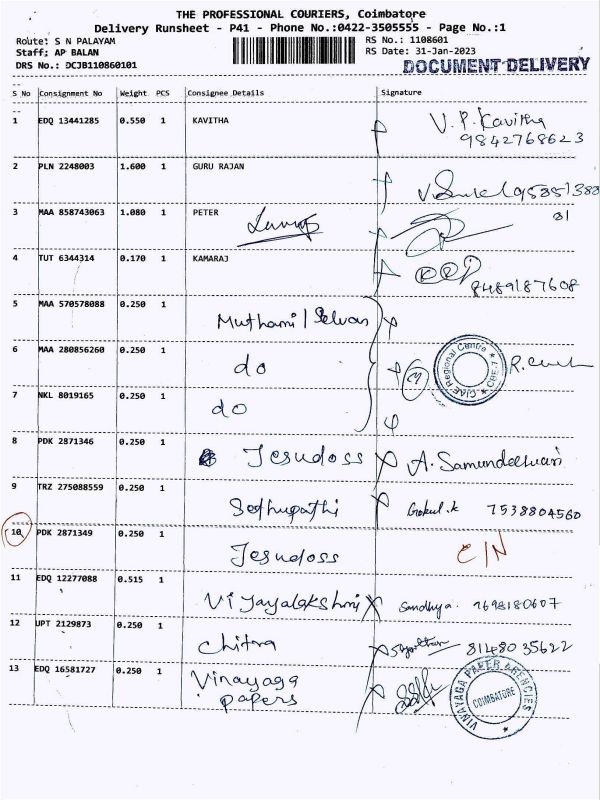 THE PROFESSIONAL COURIERS, Coimbatore
Delivery Runsheet - P41 - Phone No.:0422-3505555 - Page No.:1
Route: S N PALAYAM
RS No.: 1108601
Staff: AP BALAN
RS Date: 31-Jan-2023
DRS No.: DCJB110860101
DOCUMENT DELIVERY
S No Consignment No Weight PCS Consignee Details Signature
1 EDQ 13441285 0.550 1 KAVITHA V. P. Kavitha
9842768623
2 PLN 2248003 1.600 1 GURU RAJAN
3 MAA 858743063 1.080 1 PETER
81
4 TUT 6344314 0.170 1 KAMARAJ
8489187608
5 MAA 570578088 0.250 1 Muthamil Selvan
6 MAA 280856260 0.250 1 do
CIAE Regional Centre * CBE-7 *
7 NKL 8019165 0.250 1 do
8 PDK 2871346 0.250 1 Jesudoss A. Samundeeswari
9 TRZ 275088559 0.250 1 Sethupathi Gokul.k 7538804560
10 PDK 2871349 0.250 1 Jesudoss C/N
11 EDQ 12277088 0.515 1 Vijayalakshmi Sandhya. 7698180607
12 UPT 2129873 0.250 1 Chitra 8148035622
13 EDQ 16581727 0.250 1 Vinayaga
papers
VINAYAGA PAPER AGENCIES
COIMBATORE